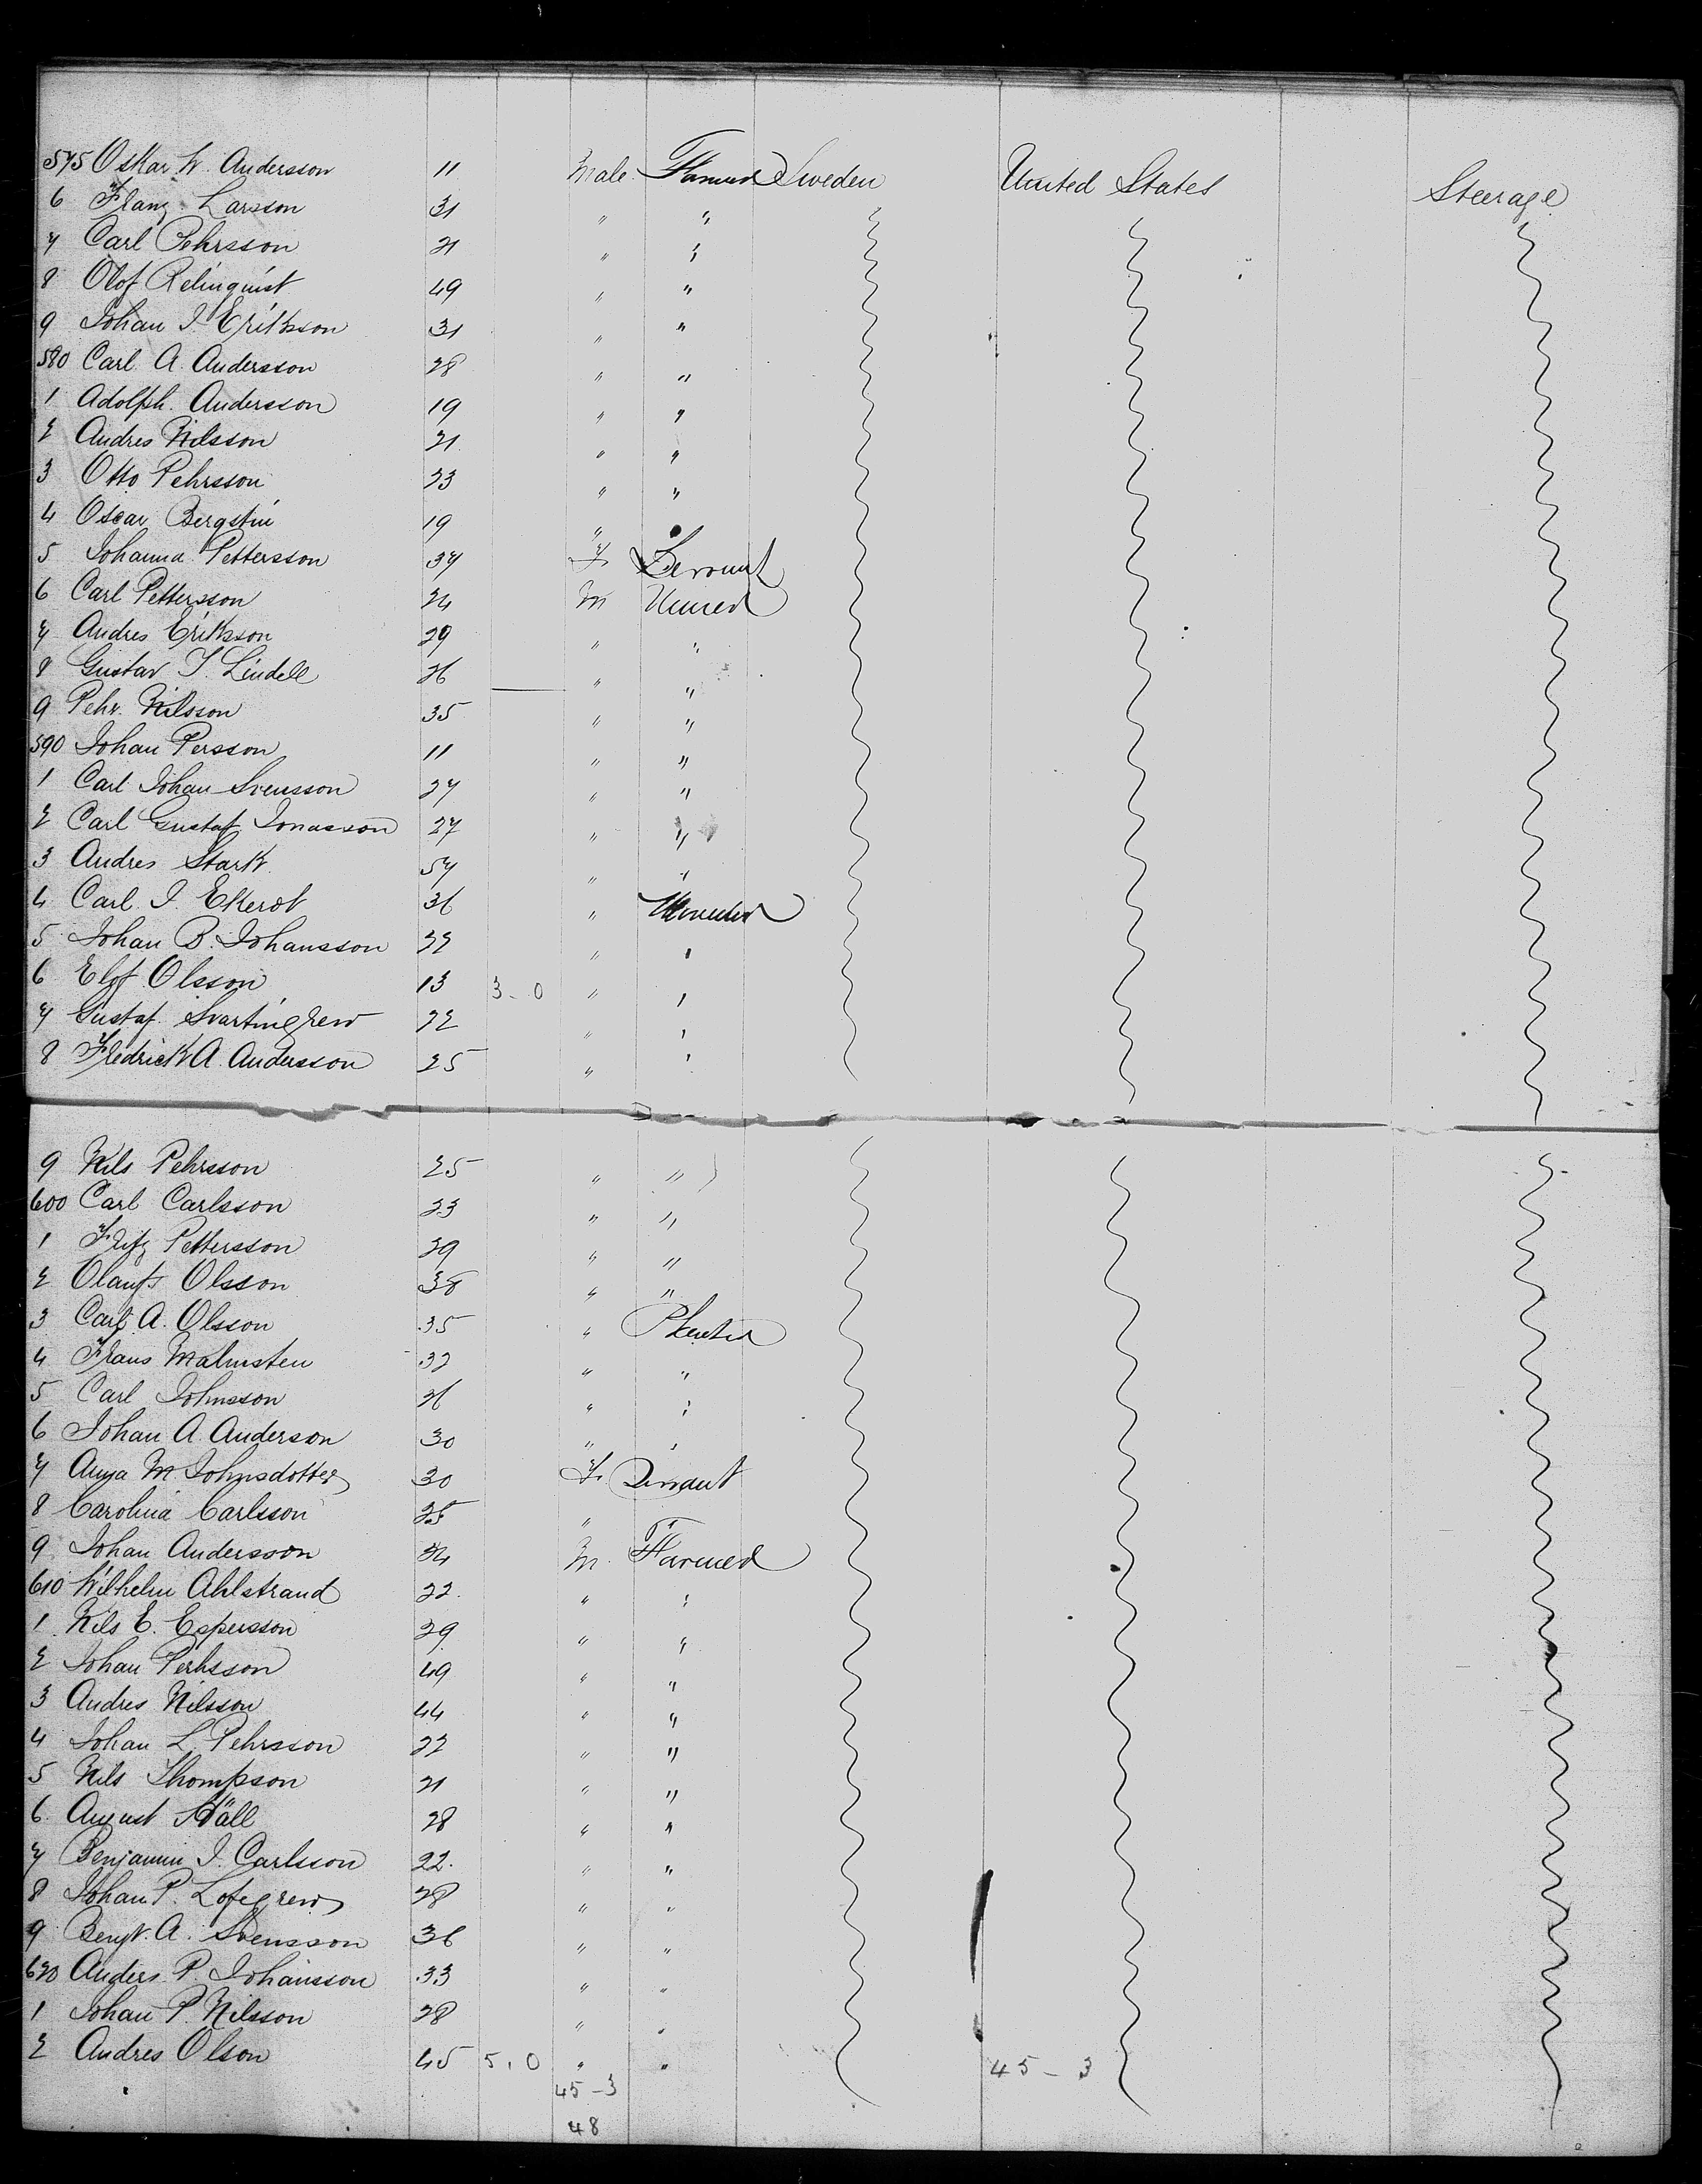 575 Oskar W. Andersson 11 Male Farmer Sweden United States Steerage
6 Franz Larsson 31 " "
7 Carl Pehrsson 21 " "
8 Olof Relinquist 49 " "
9 Johan I. Eriksson 31 " "
580 Carl A. Andersson 28 " "
1 Adolph. Andersson 19 " "
2 Andres Nilsson 21 " "
3 Otto Pehrsson 23 " "
4 Oscar Bergstin 19 "
5 Johanna Pettersson 37 F. Servant
6 Carl Pettersson 24 M
7 Andres Eriksson 29 " "
8 Gustav T. Lindell 26 " "
9 Pehr. Nilsson 35 " "
590 Johan Persson 11 " "
1 Carl Johan Svensson 27 " "
2 Carl Gustaf Jonasson 27 " "
3 Andres Stark 57 " "
4 Carl I. Ekerot 36 "
5 Johan B. Johansson 32 " "
6 Elof Olsson 13 3-0 " "
7 Gustaf. Svartingrew 22 " "
8 Fredrick A. Andersson 25 " "
9 Nils Pehrsson 25 " "
600 Carl Carlsson 23 " "
1 Fritz Pettersson 29 " "
2 Olaufs Olsson 38 " "
3 Carl A. Olsson 35 "
4 Frans Malmsten 32 " "
5 Carl Johnsson 26 " "
6 Johan A. Anderson 30 " "
7 Anna M. Johnsdotter 30 F. Servant
8 Carolina Carlsson 25 " "
9 Johan Andersson 34 M. Farmer
610 Wilhelm Ahlstrand 22. " "
1. Nils E. Espersson 29 " "
2 Johan Perhsson 49 " "
3 Andres Nilsson 44 " "
4 Johan L. Pehrsson 22 " "
5 Nils Thompson 21 " "
6. August Häll 28 " "
7 Benjamin I. Carlsson 22. " "
8 Johan P. Lofegrew 28 " "
9 Bengt. A. Svensson 36 " "
620 Anders P. Johansson 33 " "
1 Johan P. Nilsson 28 " "
2 Andres Olson 45 5.0 " " 45-3
45-3
48